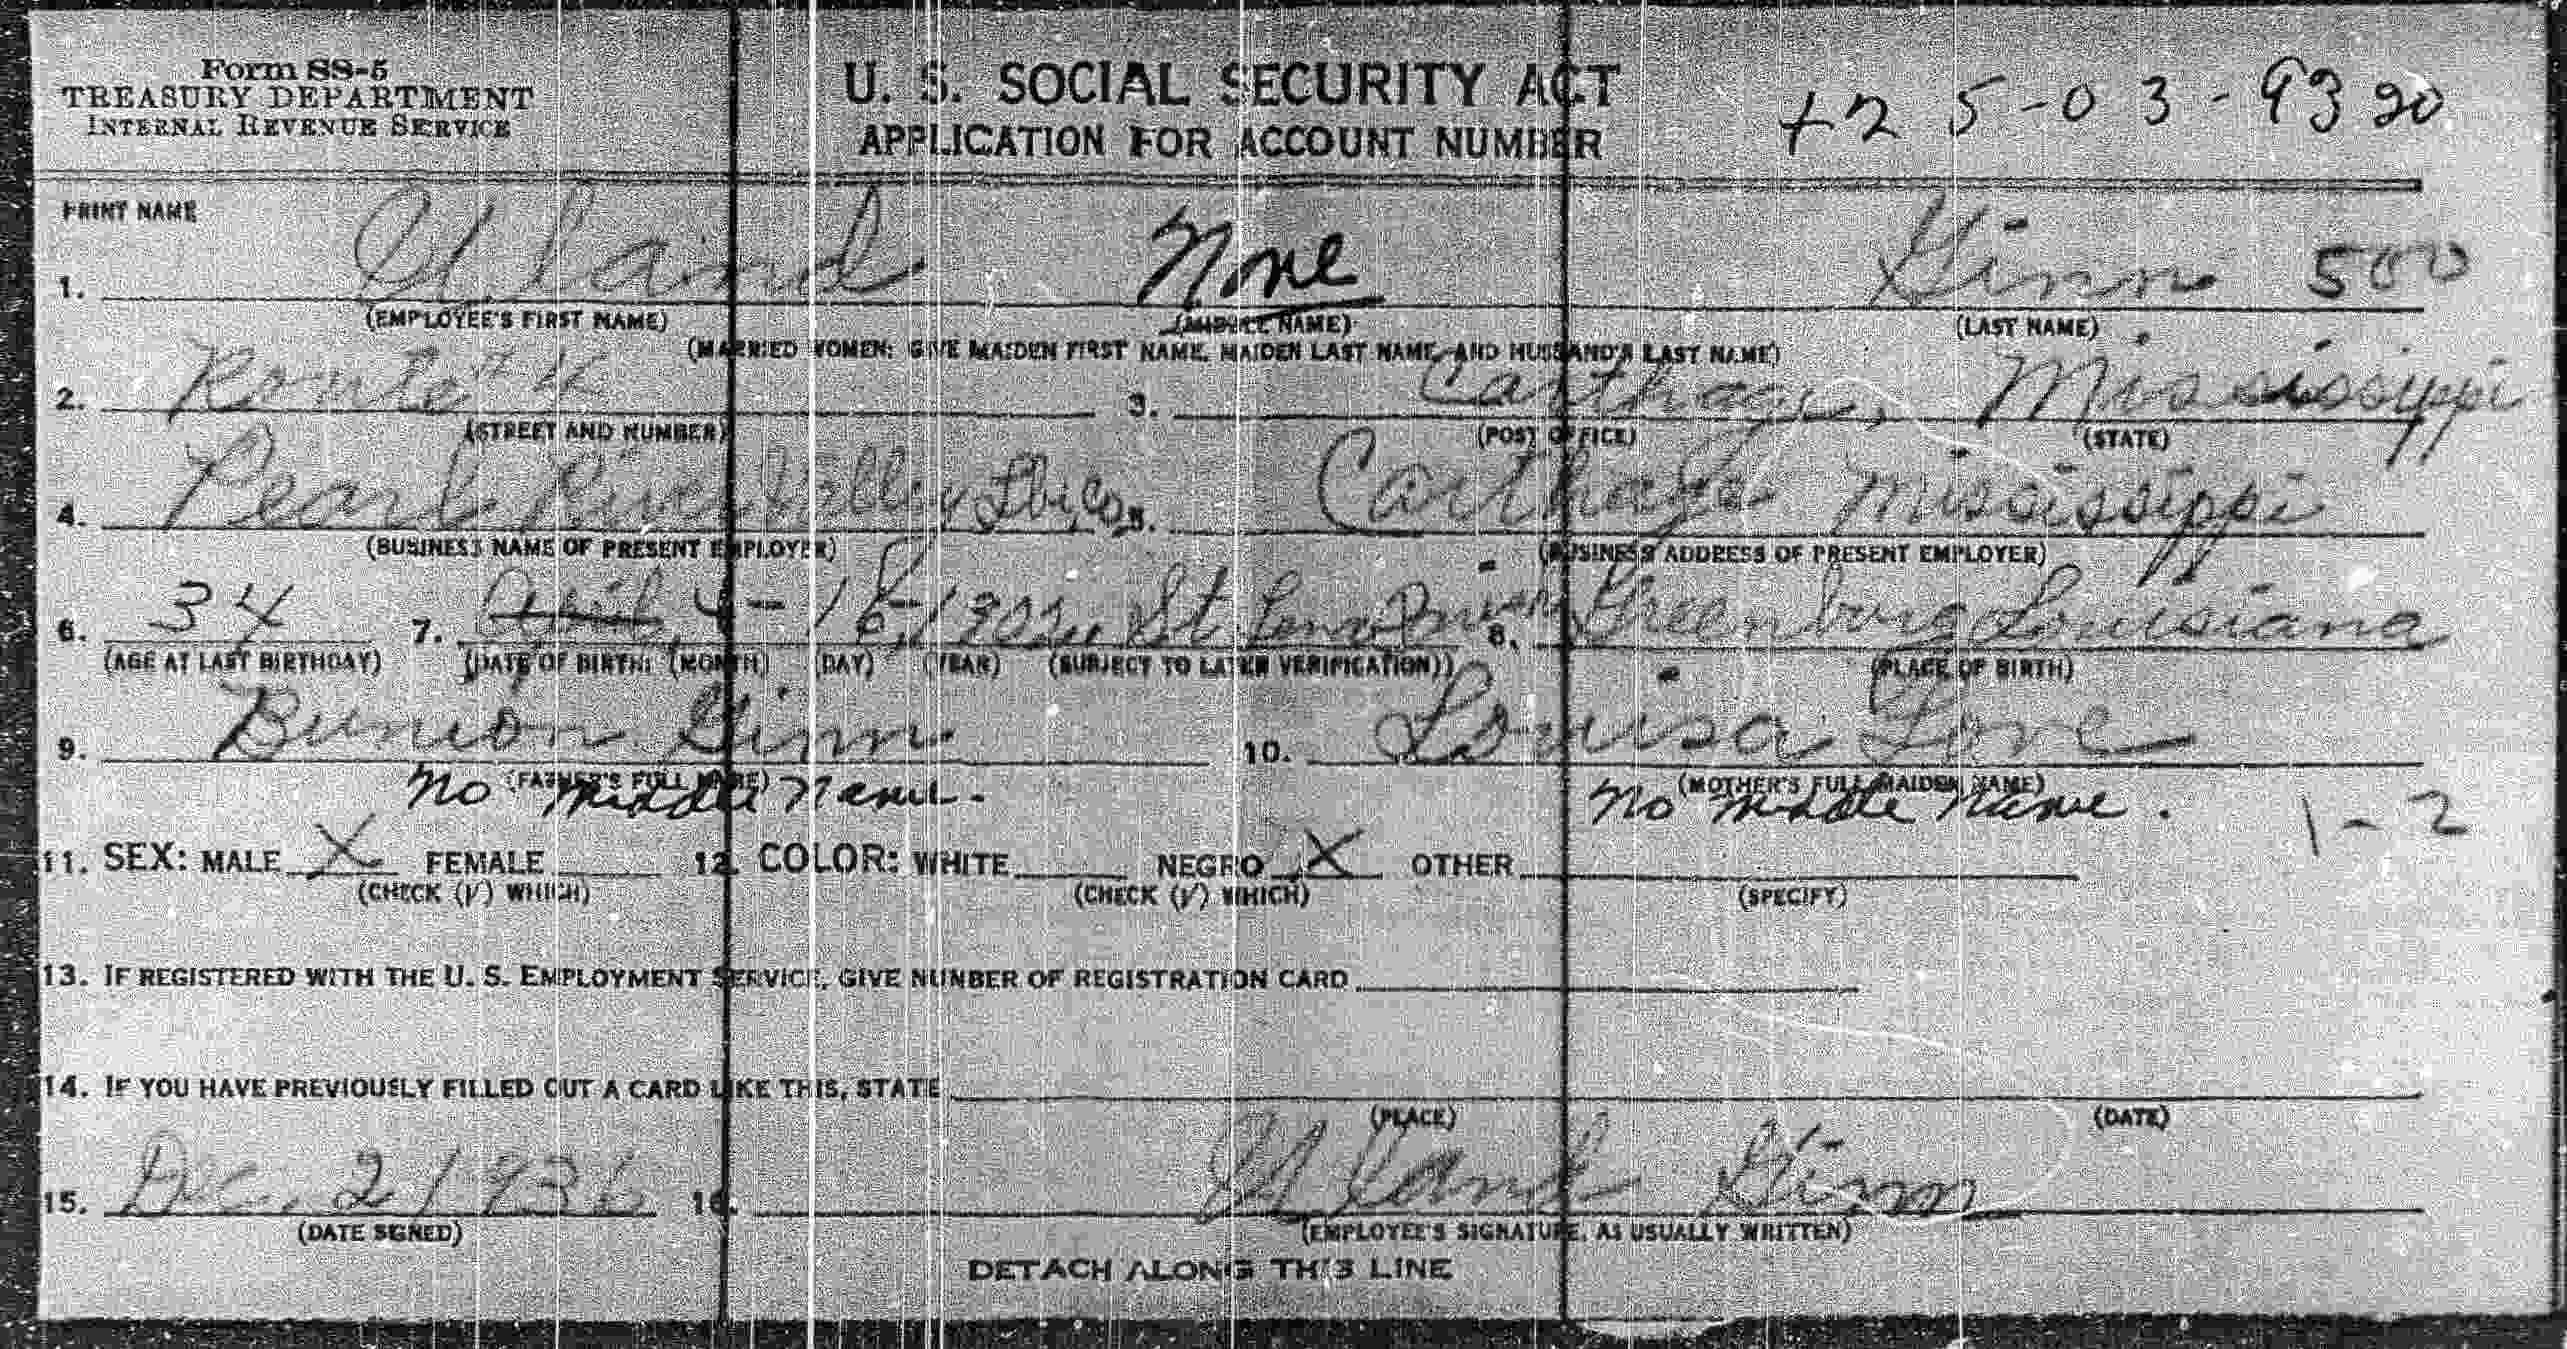 Form SS-5
TREASURY DEPARTMENT
INTERNAL REVENUE SERVICE
U. S. SOCIAL SECURITY ACT
APPLICATION FOR ACCOUNT NUMBER
25-03-9320
PRINT NAME
1. None Ginn 500
(EMPLOYEE'S FIRST NAME) (MIDDLE NAME) (LAST NAME)
(MARRIED WOMEN: GIVE MAIDEN FIRST NAME, MAIDEN LAST NAME, AND HUSBAND'S LAST NAME)
2. Route #4 3. Carthage, Mississippi
(STREET AND NUMBER) (POST OFFICE) (STATE)
4. Pearl River Valley Lbr. Co. 5. Carthage Mississippi
(BUSINESS NAME OF PRESENT EMPLOYER) (BUSINESS ADDRESS OF PRESENT EMPLOYER)
6. 34 7. April 4- 8. Greenburg Louisiana
(AGE AT LAST BIRTHDAY) (DATE OF BIRTH: (MONTH) (DAY) (YEAR) (SUBJECT TO LATER VERIFICATION)) (PLACE OF BIRTH)
9. Bunion Ginn 10. Louisa
(FATHER'S FULL NAME) (MOTHER'S FULL MAIDEN NAME)
No Middle Name. No Middle Name. 1-2
11. SEX: MALE X FEMALE 12. COLOR: WHITE NEGRO X OTHER
(CHECK (√) WHICH) (CHECK (√) WHICH) (SPECIFY)
13. IF REGISTERED WITH THE U. S. EMPLOYMENT SERVICE, GIVE NUMBER OF REGISTRATION CARD
14. IF YOU HAVE PREVIOUSLY FILLED OUT A CARD LIKE THIS, STATE
(PLACE) (DATE)
15. Dec. 2 1936 16. Ginn
(DATE SIGNED) (EMPLOYEE'S SIGNATURE, AS USUALLY WRITTEN)
DETACH ALONG THIS LINE